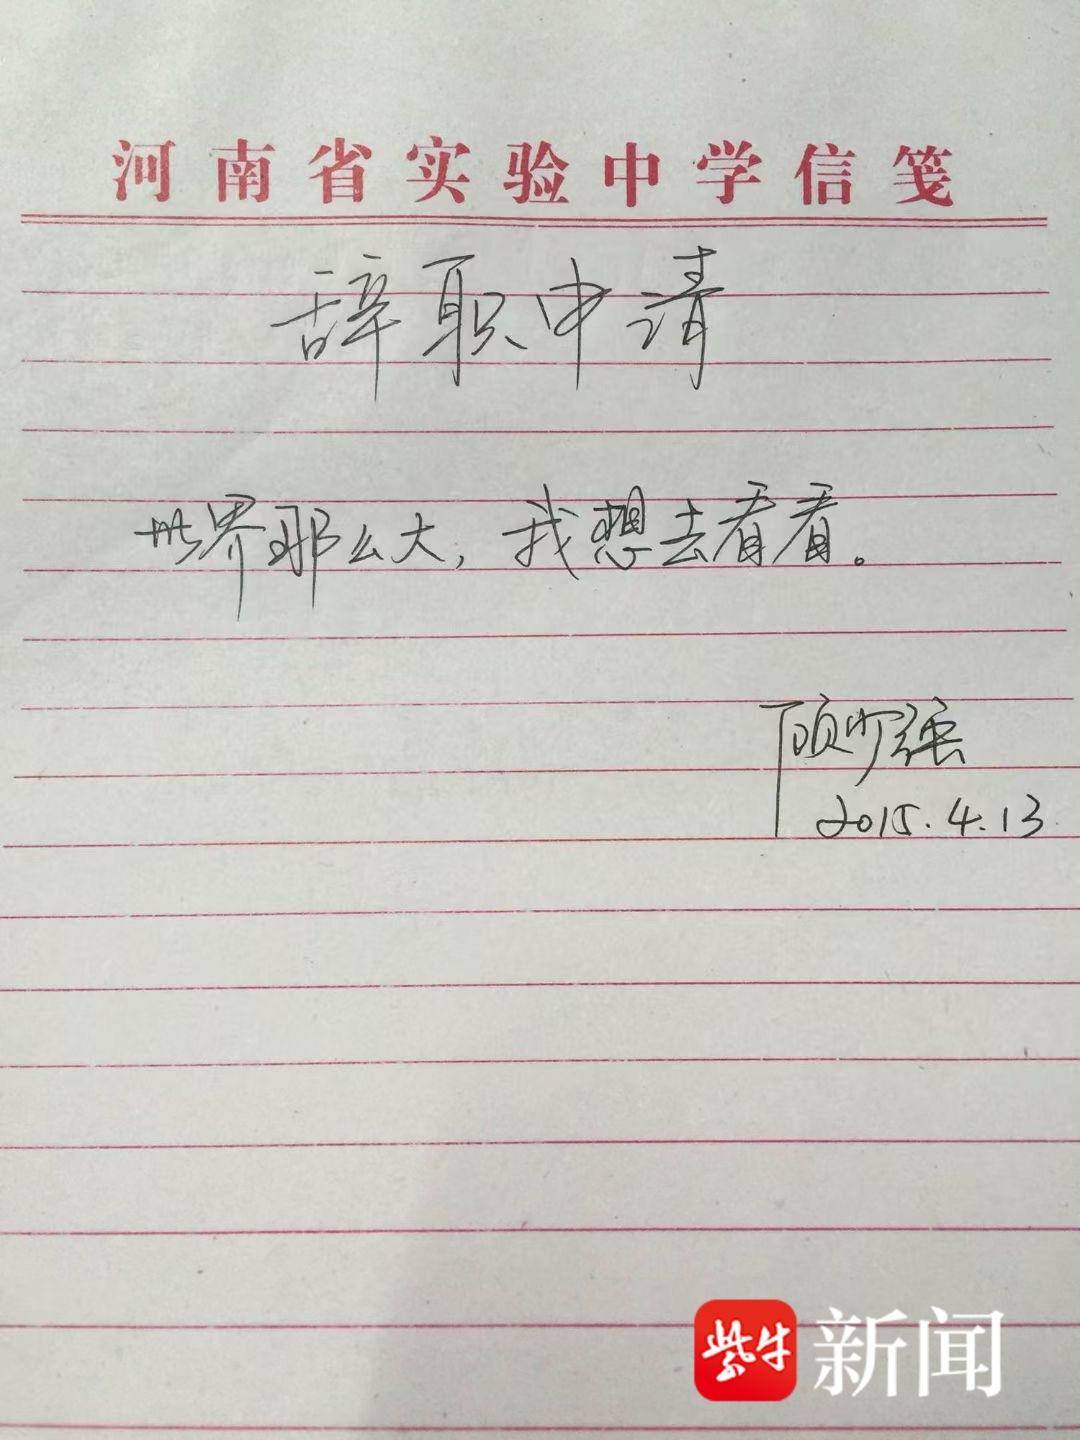 河南省实验中学信笺
辞职申请
世界那么大，我想去看看。
顾少强
2015.4.13
紫牛新闻